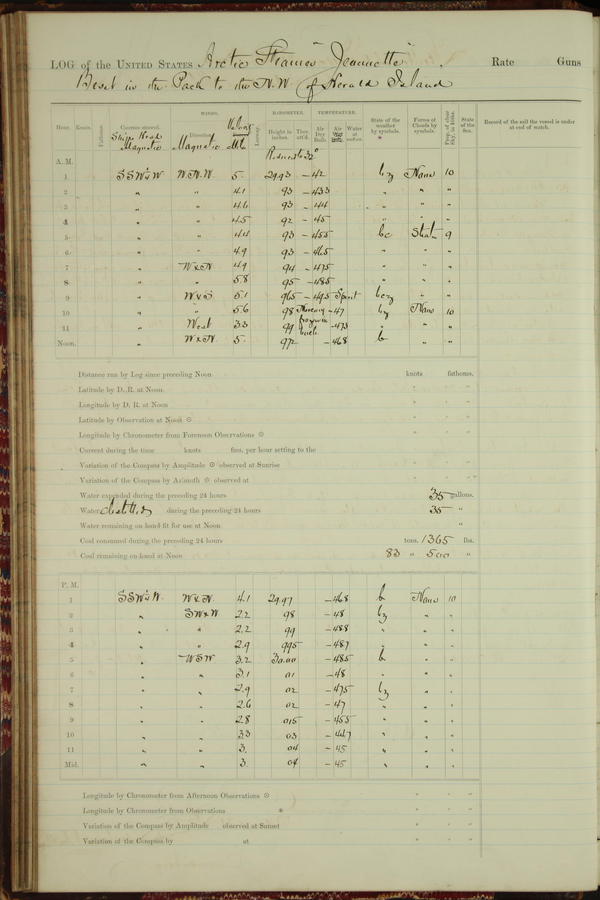 LOG of the UNITED STATES Arctic Steamer "Jeannette" Rate Guns
Beset in the Pack to the N.W. of Herald Island
WINDS. BAROMETER. TEMPERATURE.
Hour. Knots. Fathoms. Courses steered. Direction Leeway. Height in inches. Ther. att'd. Air Dry Bulb. Air Wet Bulb. Water at surface. State of the weather by symbols. Forms of Clouds by symbols. Prop. of clear Sky, in 10ths. State of the Sea. Record of the sail the vessel is under at end of watch.
Ship's Head Magnetic Magnetic
A.M. Reduced to 32°
1 SSW½W W.N.W 5. 29.93 -42 bz None 10
2 " " 4.1 93 -43.3 " " "
3 " " 4.6 93 -44 " " "
4 " " 4.5 92 -45 " " "
5 " " 4.4 93 -45.5 bc Strat 9
6 " " 4.9 93 -46.5 " " "
7 " WxN 4.9 94 -47.5 " " "
8 " " 5.8 95 -48.5 " " "
9 " WxS 5.1 965 -49.5 Spirit bcz " "
10 " " 5.6 98 Mercury -47 bz None 10
11 " West 3.3 99 frozen in -47.3 " " "
bulb
Noon. " WxN 5. 972 -46.8 b " "
Distance run by Log since preceding Noon knots fathoms.
Latitude by D. R. at Noon " "
Longitude by D. R. at Noon " "
Latitude by Observation at Noon ☉ " "
Longitude by Chronometer from Forenoon Observations ☉ " "
Current during the time knots fms. per hour setting to the
Variation of the Compass by Amplitude ☉ observed at Sunrise " "
Variation of the Compass by Azimuth ☉ observed at " "
Water expended during the preceding 24 hours 35 gallons.
Water distilled during the preceding 24 hours 35 "
Water remaining on hand fit for use at Noon "
Coal consumed during the preceding 24 hours tons. 1365 lbs.
Coal remaining on hand at Noon 83 " 500 "
P.M.
1 SSW½W. WxN. 4.1 29.97 -46.8 b None 10
2 " SWxW 2.2 98 -48 bz " "
3 " " 2.2 99 -48.8 " " "
4 " " 2.9 995 -48.7 " " "
5 " WSW 3.2 30.00 -48.5 b " "
6 " " 3.1 01 -48 " " "
7 " " 2.9 02 -47.5 bz " "
8 " " 2.6 02 -47 " " "
9 " " 2.8 015 -45.5 " " "
10 " " 3.3 03 -44.7 " " "
11 " " 3. 04 -45 " " "
Mid. " " 3. 04 -45 " " "
Longitude by Chronometer from Afternoon Observations ☉ " "
Longitude by Chronometer from Observations * " "
Variation of the Compass by Amplitude observed at Sunset " "
Variation of the Compass by at " "